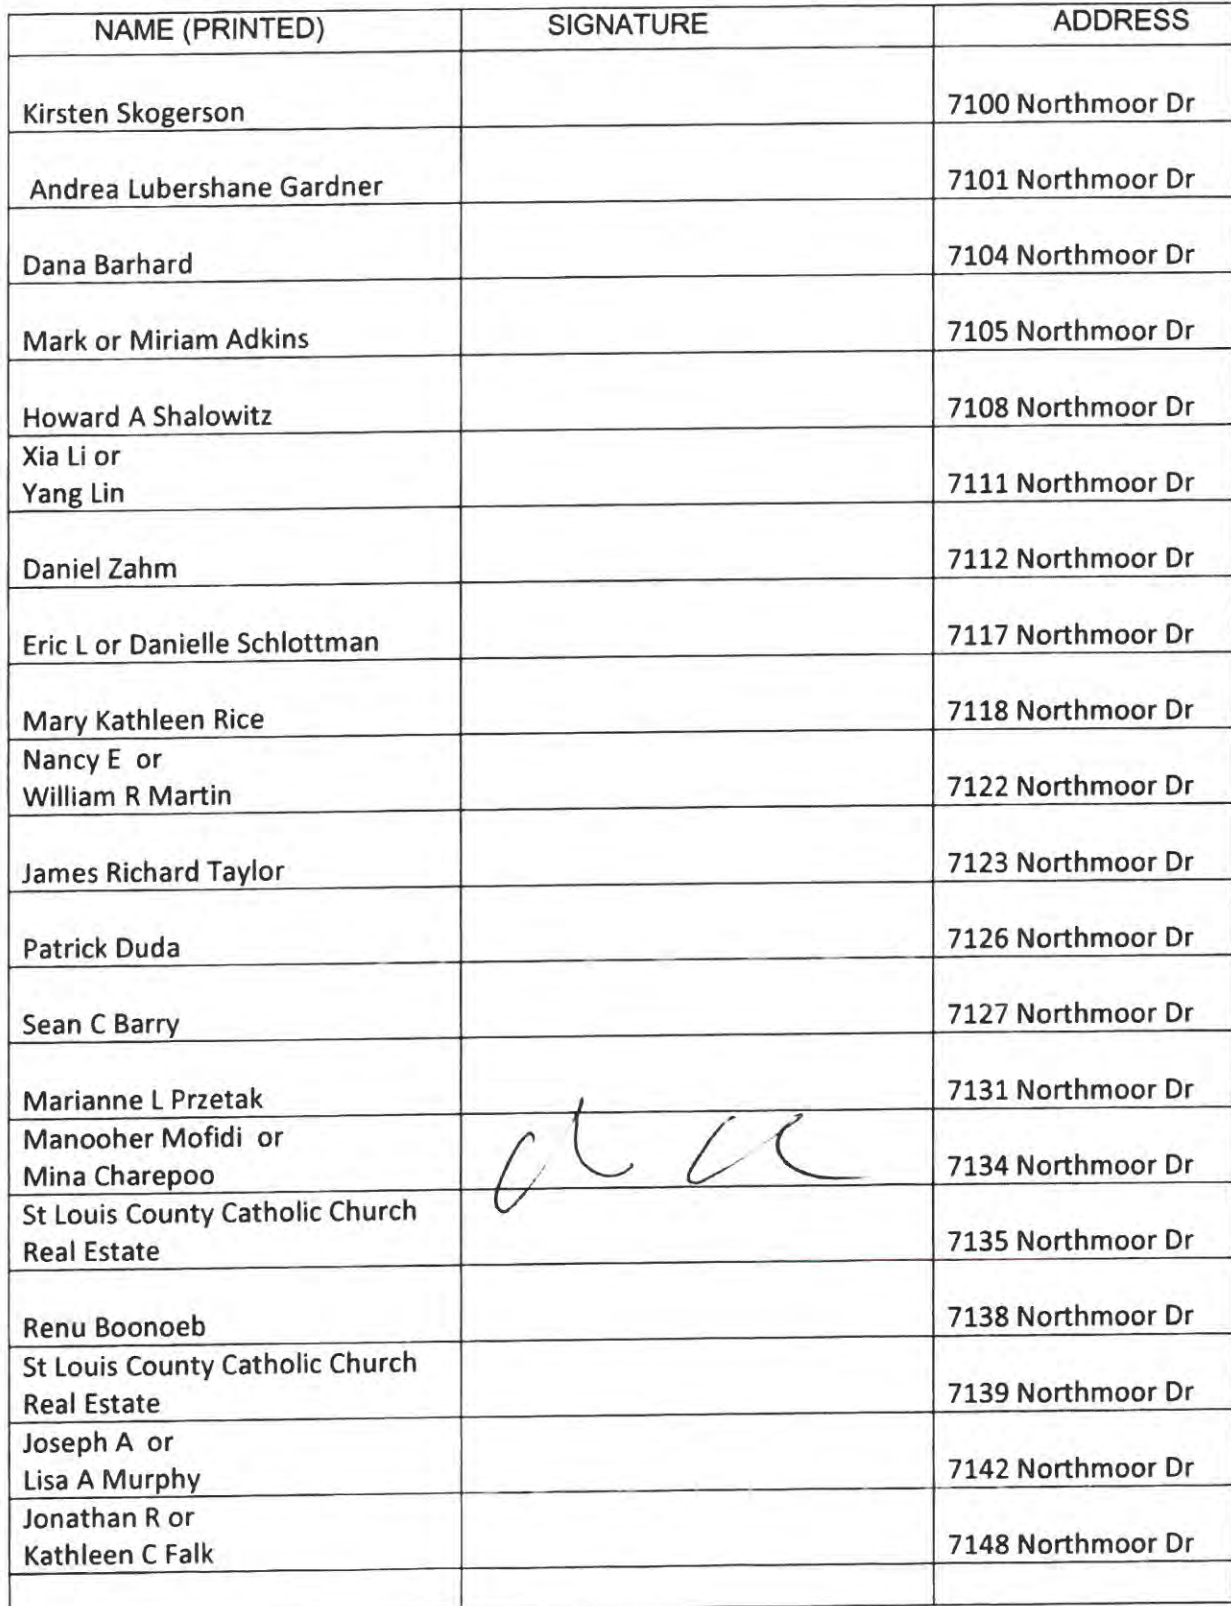 NAME (PRINTED) SIGNATURE ADDRESS
Kirsten Skogerson 7100 Northmoor Dr
Andrea Lubershane Gardner 7101 Northmoor Dr
Dana Barhard 7104 Northmoor Dr
Mark or Miriam Adkins 7105 Northmoor Dr
Howard A Shalowitz 7108 Northmoor Dr
Xia Li or
Yang Lin 7111 Northmoor Dr
Daniel Zahm 7112 Northmoor Dr
Eric L or Danielle Schlottman 7117 Northmoor Dr
Mary Kathleen Rice 7118 Northmoor Dr
Nancy E or
William R Martin 7122 Northmoor Dr
James Richard Taylor 7123 Northmoor Dr
Patrick Duda 7126 Northmoor Dr
Sean C Barry 7127 Northmoor Dr
Marianne L Przetak 7131 Northmoor Dr
Manooher Mofidi or
Mina Charepoo 7134 Northmoor Dr
St Louis County Catholic Church
Real Estate 7135 Northmoor Dr
Renu Boonoeb 7138 Northmoor Dr
St Louis County Catholic Church
Real Estate 7139 Northmoor Dr
Joseph A or
Lisa A Murphy 7142 Northmoor Dr
Jonathan R or
Kathleen C Falk 7148 Northmoor Dr